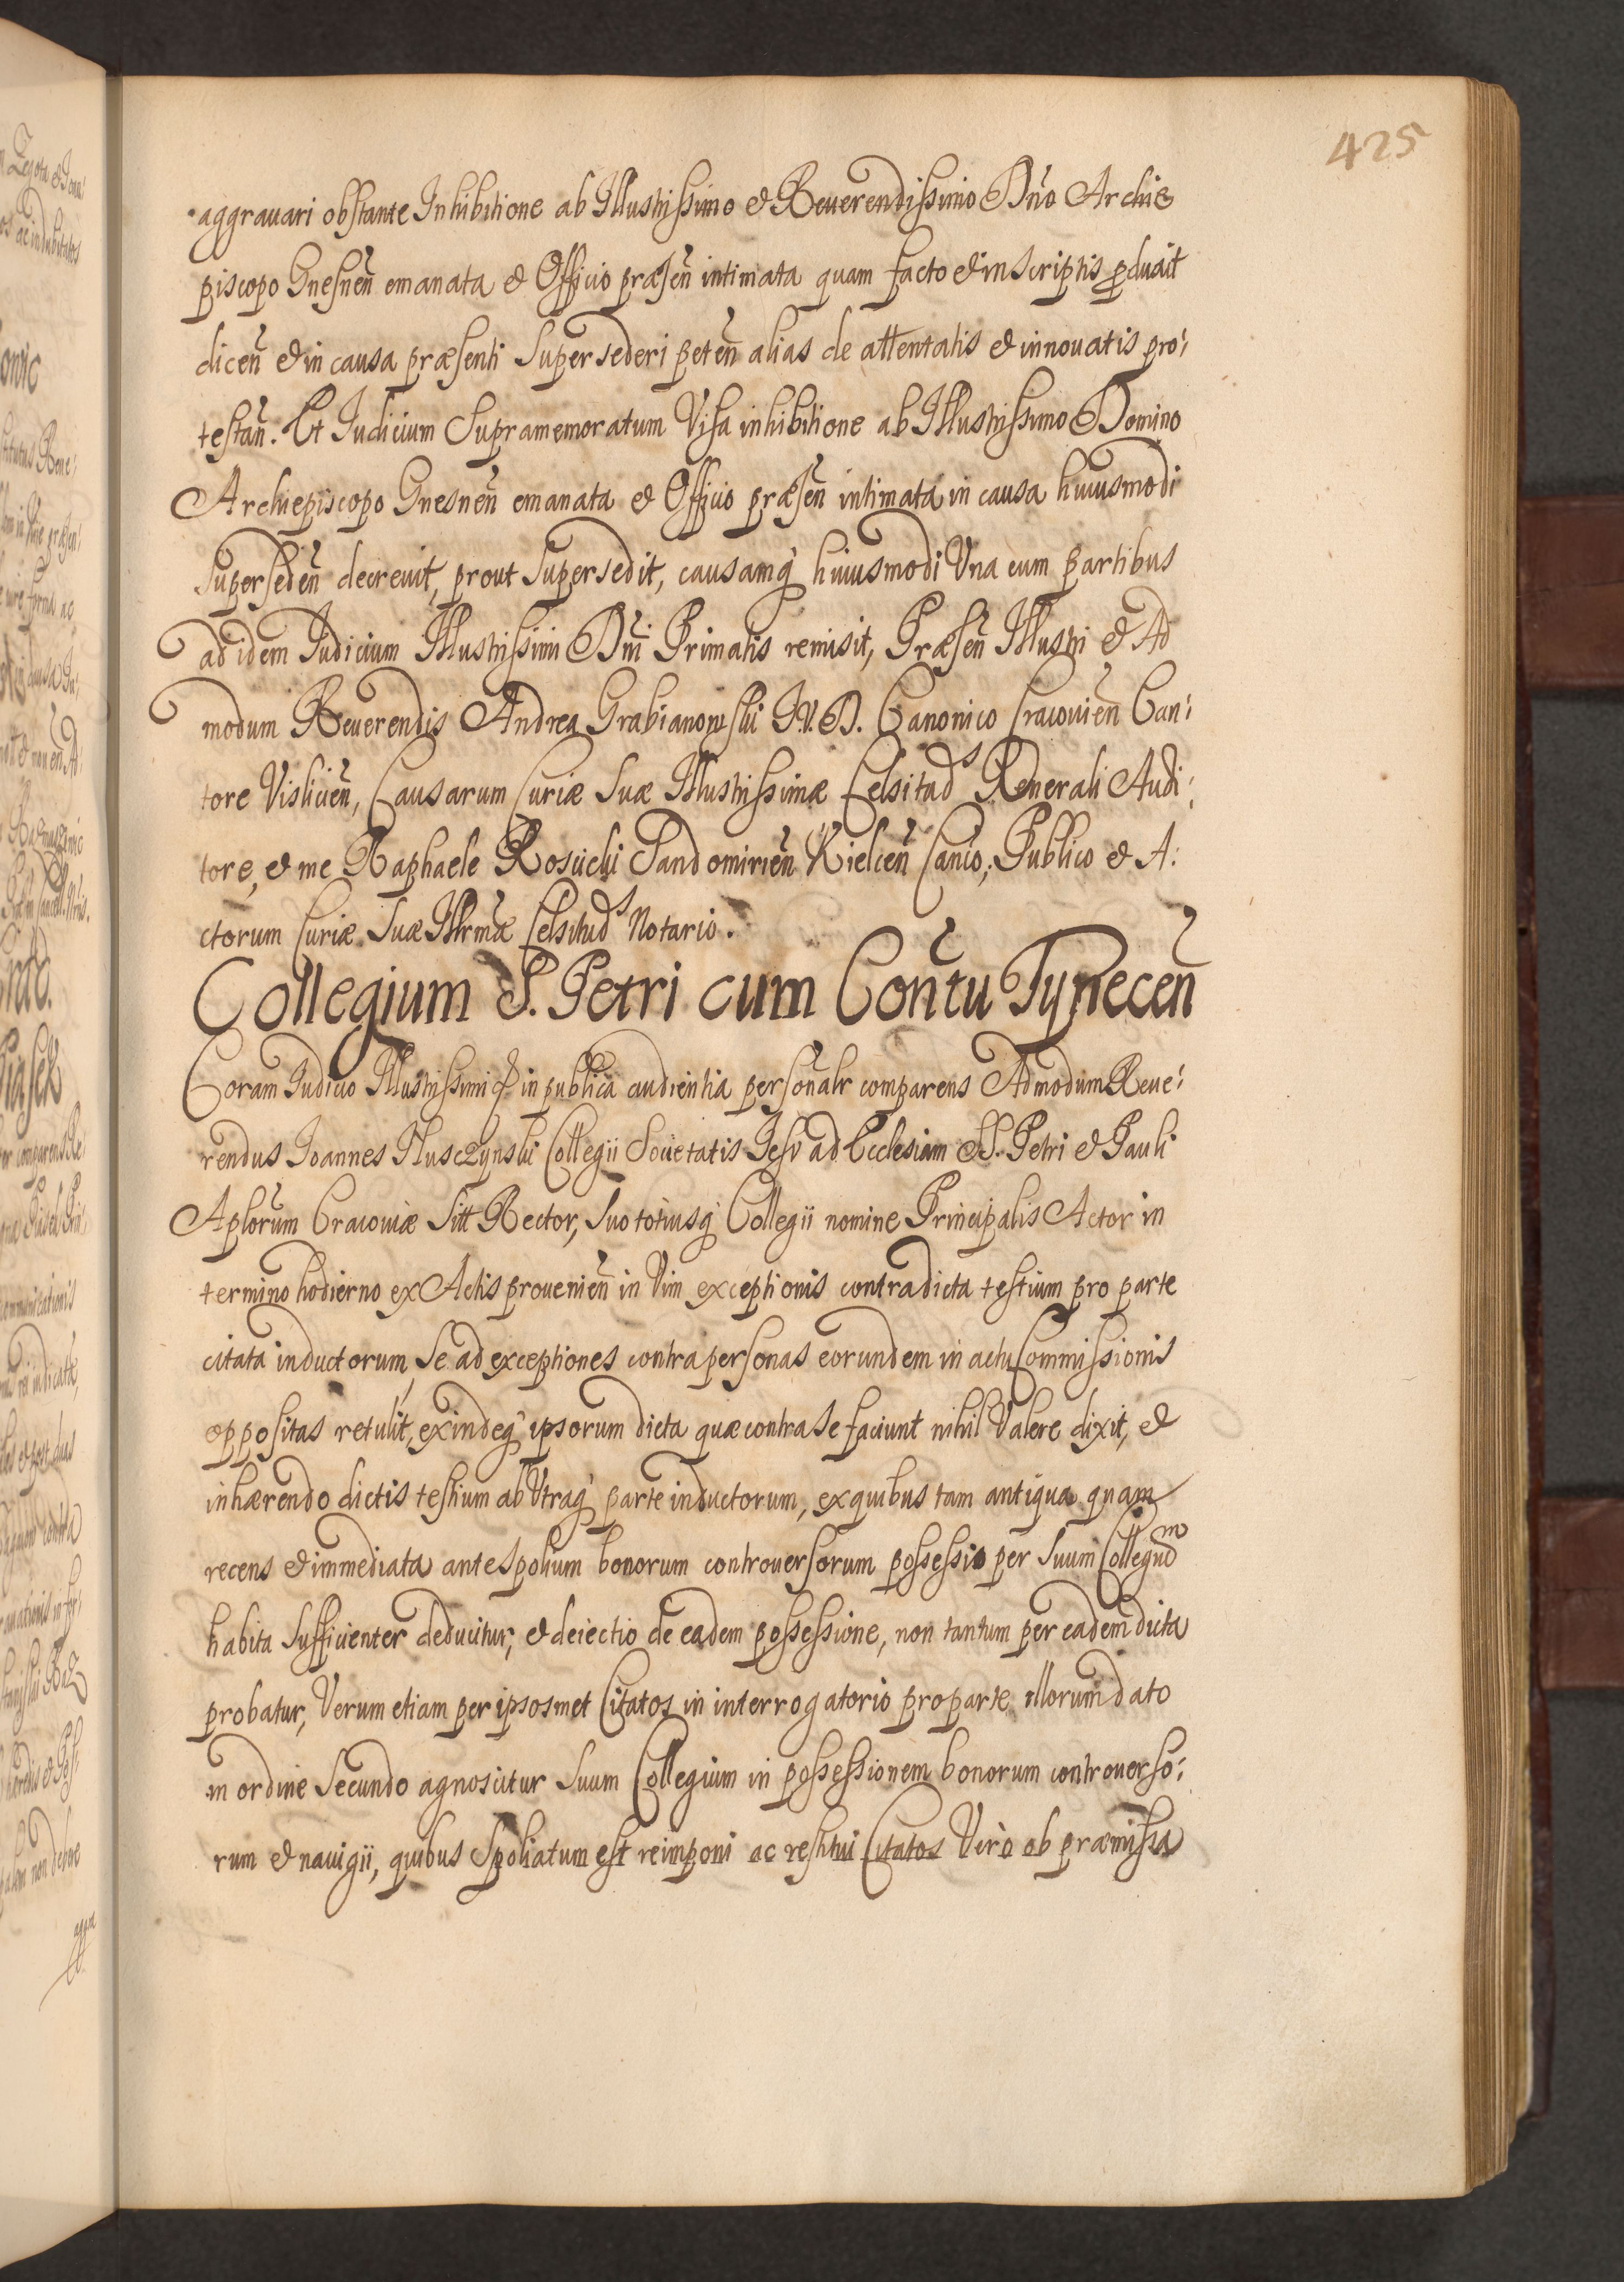 425
aggrauari obstante Inhibitione ab Illustrissimo et Reuerendissimo Dño Archie
piscopo Gnesneñ emanata et Officio præseñ intimata quam facto et in scriptis produxit
diceñ et in causa præsenti supersederi peteñ alias de attentatis et innouatis pro:
testañ. Et Iudicium supramemoratum Visa inhibitione ab Illustrissimo Domino
Archiepiscopo Gnesneñ emanata et Officio præseñ intimata in causa huiusmodi
supersedeñ decreuit, prout supersedit, causamq huiusmodi Vna cum partibus
ad idem Iudicium Illustrissimi Dñi Primatis remisit, Præseñ Illustri et Ad
modum Reuerendis Andrea Grabianowski I.V.D. Canonico Cracouieñ Can:
tore Vislicieñ, Causarum Curiæ suæ Illustrissimæ Celsitud^s Generali Audi:
tore, et me Raphaele Rosücki Sandomirieñ Kielceñ Canco, Publico et A:
ctorum Curiæ suæ Illrmæ Celsitud^s Notario.
Collegium S. Petri cum Coñtu Tyneceñ
Coram Iudicio Illustrissimi & in publica audientia personalr comparens Admodum Reue:
rendus Ioannes Husczynski Collegii Societatis Iesv ad Ecclesiam SS. Petri et Pauli
Aplorum Cracouiæ Sitt Rector, suo totiusq Collegii nomine Principalis Actor in
termino hodierno ex Actis prouenieñ in Vim exceptionis contra dicta testium pro parte
citata inductorum, se ad exceptiones contra personas eorundem in actu Commissionis
oppositas retulit, exindeq ipsorum dicta quæ contra se faciunt nihil Valere dixit, et
inhærendo dictis testium ab Vtraq parte inductorum, ex quibus tam antiqua quam
recens et immediata ante spolium bonorum controuersorum possessio per suum Collegiũ^m
habita sufficienter deducitur, et deiectio de eadem possessione, non tantum per eadem dicta
probatur, Verum etiam per ipsosmet Citatos in interrogatorio pro parte illorum dato
in ordine secundo agnoscitur suum Collegium in possessionem bonorum controuerso:
rum et nauigii, quibus spoliatum est reimponi ac restitui Citatos Vero ob præmissa